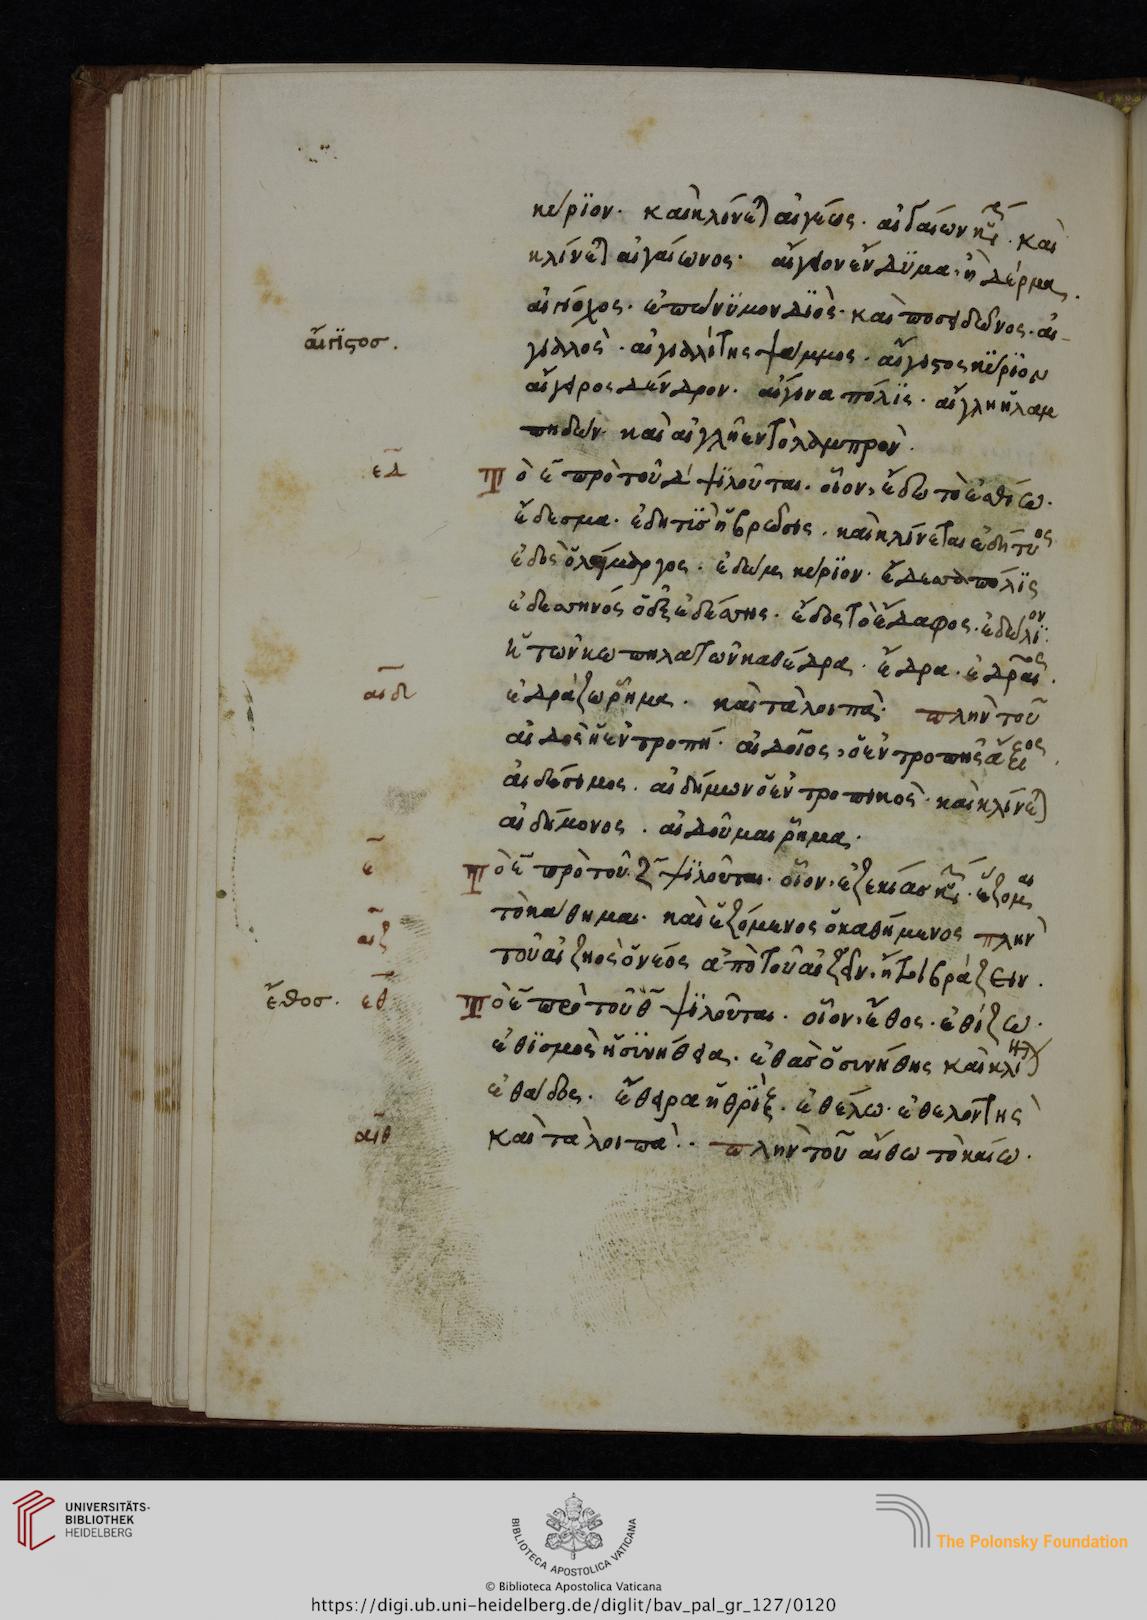 κύριον. καὶ κλίνεται αἰγέως. αἰγαίων καὶ
κλίνεται αἰγαίωνος. αἴγειον ἔνδυμα, ἢ δέρμα.
αἰγίοχος. ἐπώνυμον διός. καὶ ποσειδῶνος. αἰ-
αἴγιστος.
γιαλὸς. αἰγιαλίτης ψάμμος. αἴγιστος κύριον
αἴγειρος δένδρον. αἰγίνα πόλις. αἴγλη ἡ λαμ
πηδών. καὶ αἰγλῆεν τὸ λαμπρὸν.
εδ
Τὸ ε πρὸ τοῦ δ ψιλοῦται. οἷον, ἔδω τὸ ἐσθίω.
ἔδεσμα. ἐδητὺς ἡ βρῶσις. καὶ κλίνεται ἐδητύος
ἐδὸς ὁ λαίμαργος. κύριον. ἔδεσα πόλις
ἐδεσηνός ἔδος τὸ ἔδαφος. ἐδώλιον
ἡ τῶν κωπηλατῶν καθέδρα. ἕδρα. ἑδραῖος.
αιδ
ἑδράζω ῥῆμα. καὶ τὰ λοιπὰ. πλὴν τοῦ
αἰδὼς ἡ ἐντροπή. αἰδοῖος, ὁ ἐντροπῆς ἄξιος.
αἰδέσιμος. αἰδήμων ὁ ἐντροπικὸς. καὶ κλίνεται
αἰδήμονος. αἰδοῦμαι ῥῆμα.
ε
Τὸ ε πρὸ τοῦ ζ ψιλοῦται. οἷον, ἐζεκίας. ἕζομαι
τὸ κάθημαι. καὶ ἑζόμενος ὁ καθήμενος πλὴν
αιζ
τοῦ αἰζηὸς ὁ νέος ἀπὸ τοῦ αἰζεῖν, ἤτοι βράζειν.
ἔθος. εθ
Τὸ ε πρὸ τοῦ θ ψιλοῦται. οἷον, ἔθος. ἐθίζω.
ἐθισμὸς ἡ συνήθεια. ἐθὰς ὁ συνήθης καὶ κλίνεται
ἐθάδος. ἔθειρα ἡ θρὶξ. ἐθέλω. ἐθελοντὴς
αιθ
καὶ τὰ λοιπά. πλὴν τοῦ αἴθω τὸ καίω.
UNIVERSITÄTS-
BIBLIOTHEK
HEIDELBERG
BIBLIOTECA APOSTOLICA VATICANA
The Polonsky Foundation
© Biblioteca Apostolica Vaticana
https://digi.ub.uni-heidelberg.de/diglit/bav_pal_gr_127/0120